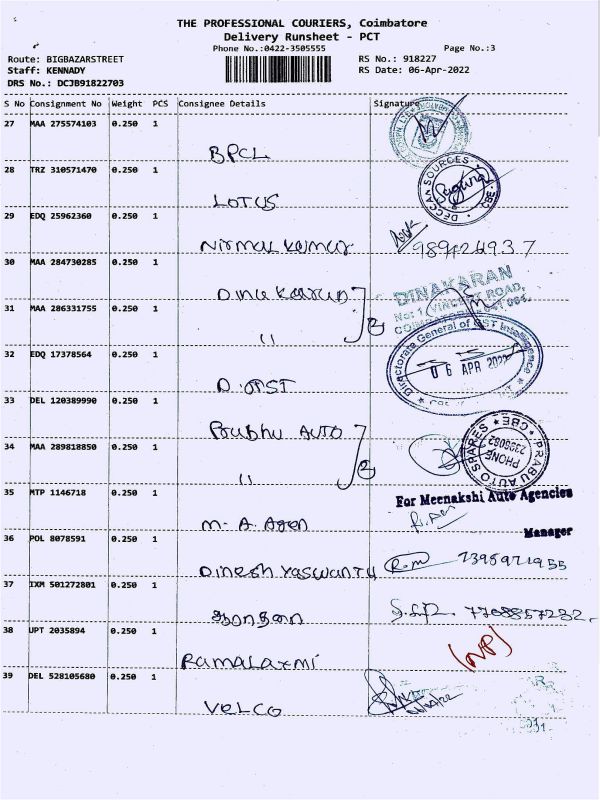 THE PROFESSIONAL COURIERS, Coimbatore
Delivery Runsheet - PCT
Phone No.:0422-3505555 Page No.:3
Route: BIGBAZARSTREET RS No.: 918227
Staff: KENNADY RS Date: 06-Apr-2022
DRS No.: DCJB91822703
S No Consignment No Weight PCS Consignee Details Signature
27 MAA 275574103 0.250 1
BPCL
28 TRZ 310571470 0.250 1
LOTUS
DECCAN SOURCES CBE
29 EDQ 25962360 0.250 1
Nirmal kumar
30 MAA 284730285 0.250 1
DINAKARAN
No: 1, VINCENT ROAD,
31 MAA 286331755 0.250 1
"
2
32 EDQ 17378564 0.250 1
Directorate General of GST Intelligence
06 APR 2022
D. GST
33 DEL 120389990 0.250 1
Prubhu AUTO
34 MAA 289818850 0.250 1
"
2
PRABU AUTO SPARES CBE
PHONE
35 MTP 1146718 0.250 1
For Meenakshi Auto Agencies
M. A. Agen
Manager
36 POL 8078591 0.250 1
Dinesh Yaswanth
37 IXM 501272801 0.250 1
38 UPT 2035894 0.250 1
Ramalaxmi
(NP)
39 DEL 528105680 0.250 1
VELCO